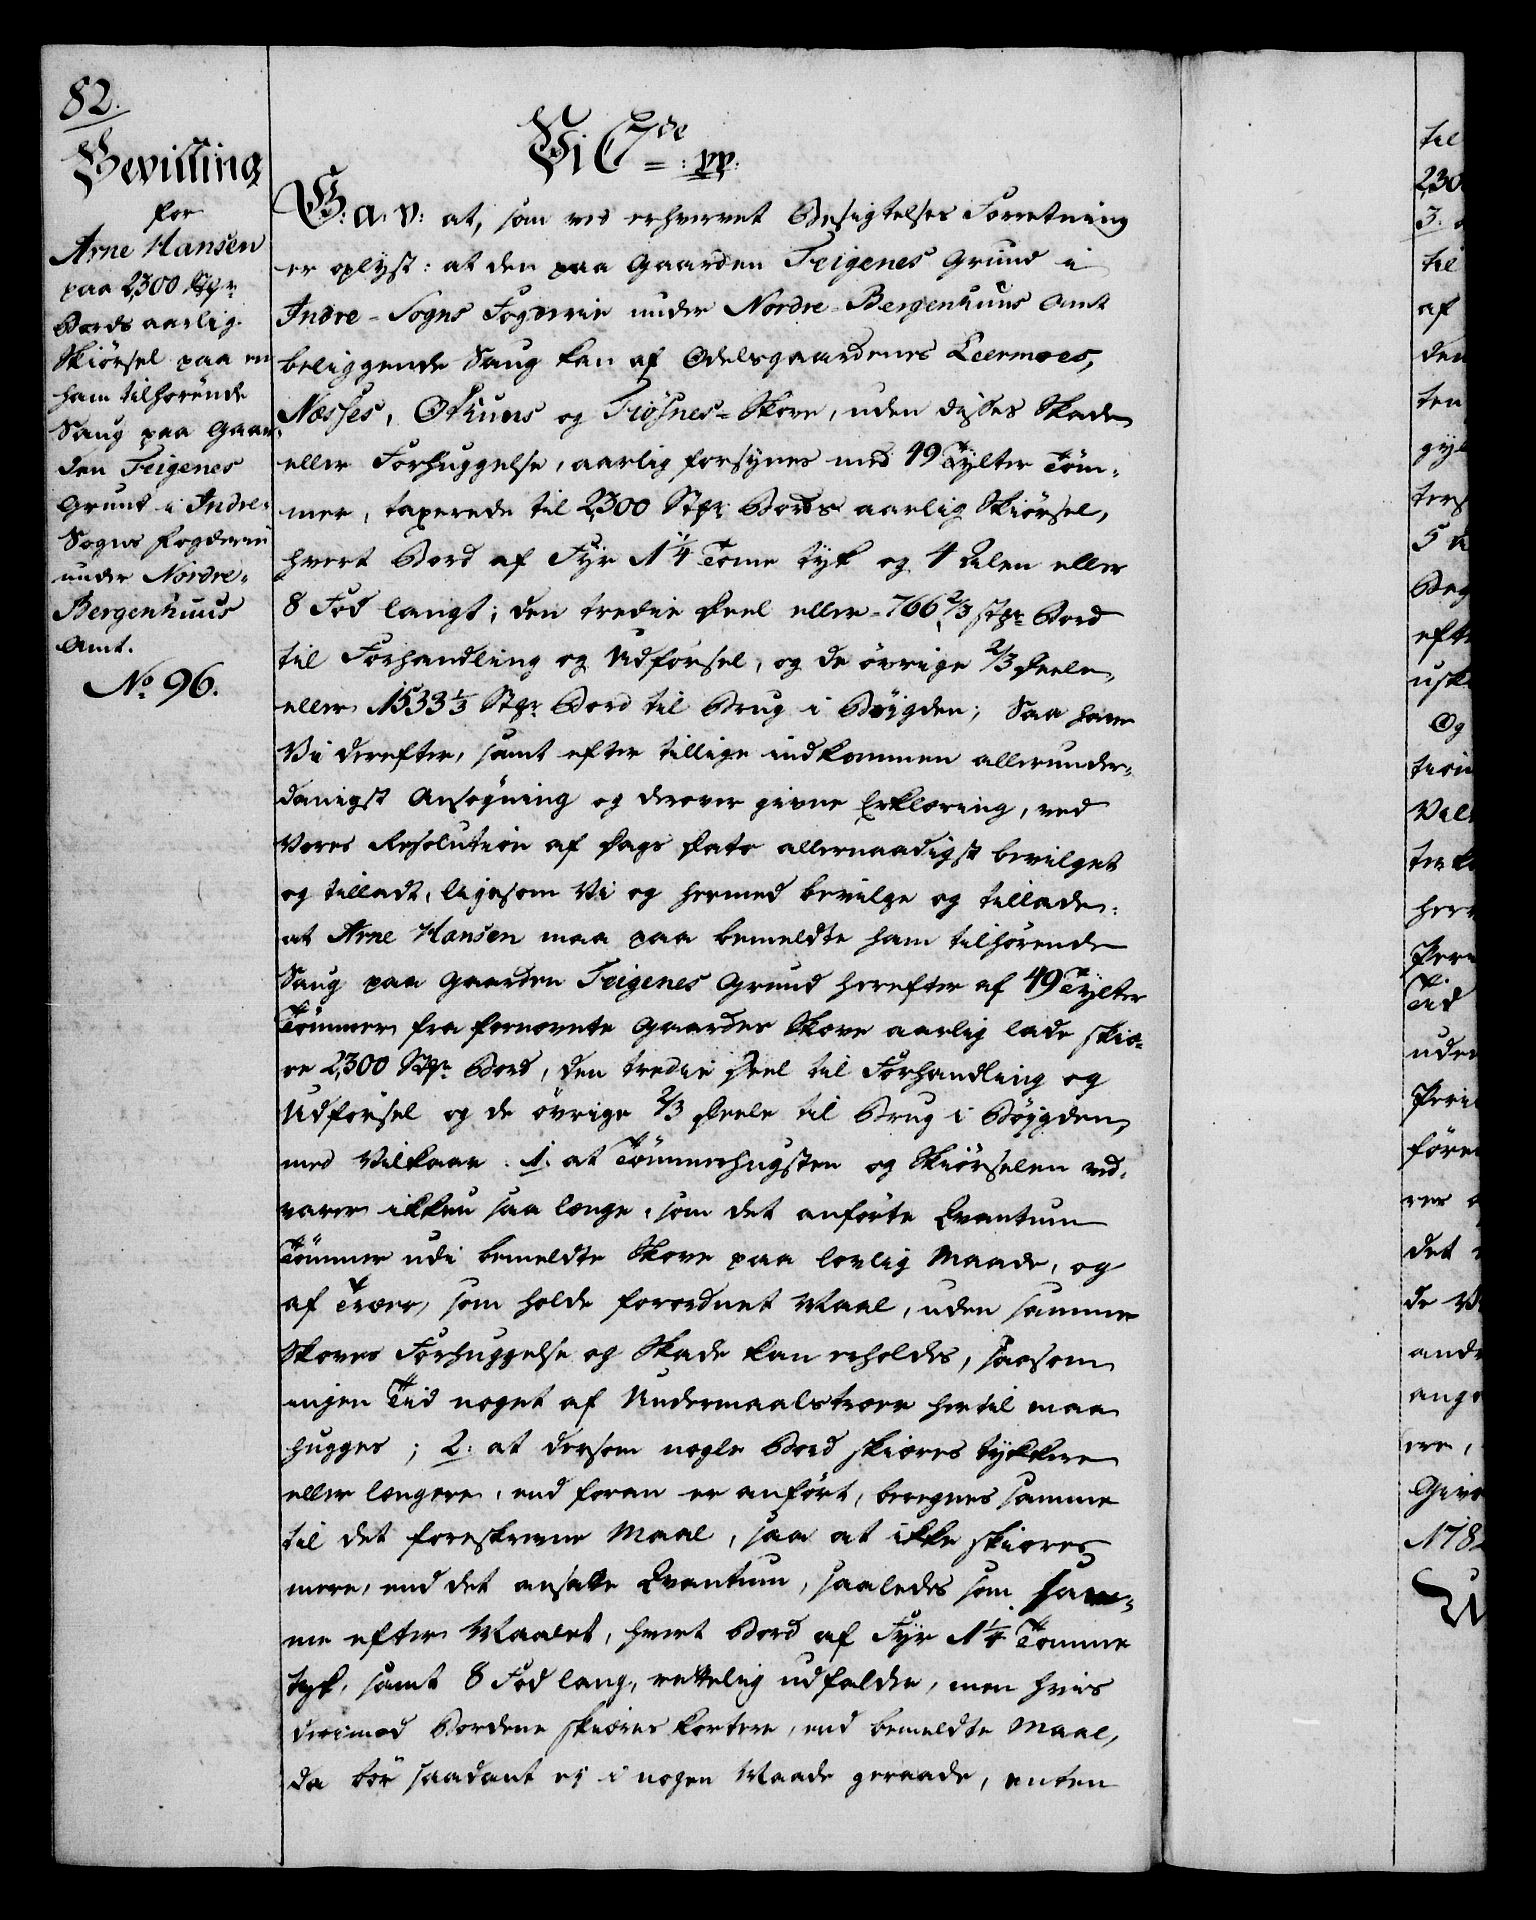 82.
Bevilling
for
Arne Hansen
paa 2300 Stkr
Bords aarlig
Skiörsel paa en
ham tilhörende
Saug paa Gaar¬
den Teigenes
Grund i Indre-
Sogns Fogderie
under Nordre-
Bergenhuus
Amt.
No 96.
Vi C 7de =: pp:
G: a: v: at, som ved erhvervet Besigtelses Forretning
er oplyst: at den paa Gaarden Teigenes Grund i
Indre-Sogns Fogderie under Nordre-Bergenhuus Amt
beliggende Saug kan af Odelsgaardenes Leermoes,
Næsses, Øthuns og Fiøsnes-Skove, uden disses Skade
eller Forhuggelse, aarlig forsynes med 49 Tylter Töm¬
mer, taxerede til 2300 Stkr Bords aarlig Skiörsel,
hvert Bord af Fyr 1 1/4 Tome tyk og 4 Alen eller
8 Fod langt; den tredie Deel eller 766 2/3 Stkr Bord
til Forhandling og Udförsel, og de övrige 2/3 Deele
eller 1533 1/3 Stkr Bord til Brug i Bÿgden; Saa have
Vi derefter, samt efter tillige indkommen allerunder¬
danigst Ansögning og derover givne Erklæring, ved
Vores Resolution af Dags Dato allernaadigst bevilget
og tilladt, ligesom Vi og hermed bevilge og tillade:
at Arne Hansen maa paa bemeldte ham tilhörende
Saug paa Gaarden Teigenes Grund herefter af 49 Tylter
Tömmer fra fornevnte Gaardes Skove aarlig lade skiæ¬
re 2300 Stkr Bord, den tredie Deel til Forhandling og
Udförsel og de övrige 2/3 Deele til Brug i Böygden,
med Vilkaar. 1. at Tömmerhugsten og Skiörselen ved¬
varer ikkun saa længe, som det anförte Qvantum
Tömmer udi bemeldte Skove paa lovlig Maade, og
af Træer, som holde forordnet Maal, uden samme
Skoves Forhuggelse og Skade kan erholdes, saasom
ingen Tiid noget af Undermaalstræer hertil maa
hugges; 2. at dersom nogle Bord skiæres tykkere
eller længere, end foran er anfört, beregnes samme
til det foreskrevne Maal, saa at ikke skiæres
mere, end det ansatte Qvantum, saaledes som sam¬
me efter Maalet, hvert Bord af Fyr 1 1/4 Tomme
tyk, samt 8 Fod lang, rettelig udfalder, men hvis
derimod Bordene skiæres kortere, end bemeldte Maal,
da bör saadant ej i nogen Maade geraade, enten
til
230
3.
til
af
den
ten
gyl
ters
5
Beg
efte
uska
Og
tion
Vil
ter
her
Tid
uden
före
res
det
de
ande
ange
ere,
Give
178